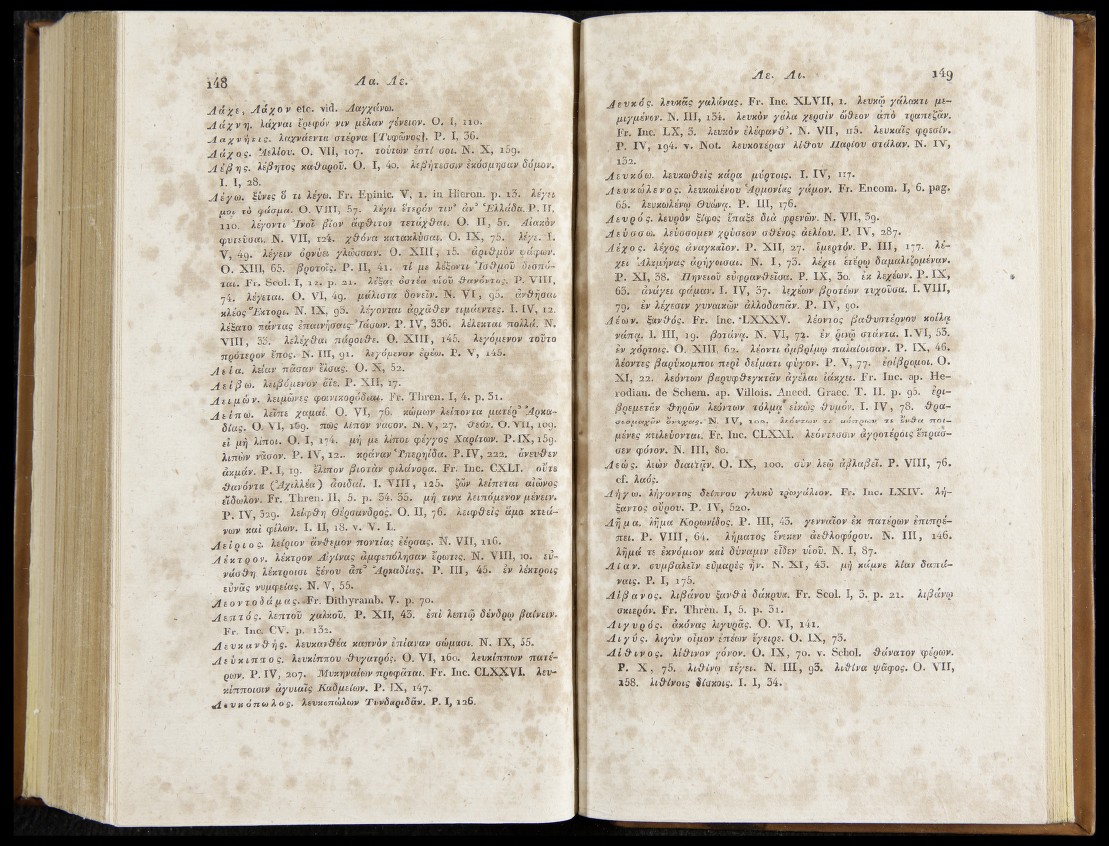 148
Λα. Λε.
Λάχε, Λάχον etc. vid. Λαγχάνω.
Λάχνη. λάχναι ἔρεφόν νιν μέλαν γένειον. O. I, 110.
Λαχνήεις. λαχνάεντα στέρνα [Τυφῶνος]. P. I, 36.
Λάχος. Ἀελίου. O. VII, 107. τούτων ἐστί σοι. N. X, 159.
Λέβης. λέβητος καθαροῦ. O. I, 40. λεβήτεσσιν ἐκόσμησαν δόμον.
I. I, 28.
Λέγω. ξύνες ὅ τι λέγω. Fr. Epinic. V, 1. in Hieron. p. 13. λέγει
μὲν τὸ φάσμα. O. VIII, 57. λέγει ἕτερόν τιν' ἀν' Ἑλλάδα. P. II,
110. λέγοντι Ἰνοῖ βίον ἄφθιτον τετάχθαι. O. II, 51. Αἰακὸν
φυτεῦσαι. N. VII, 124. χθόνα κατακλύσαι. O. IX, 75. λέγε. I.
V, 49. λέγειν ὄρνυει γλῶσσαν. O. XIII, 15. ἀριθμὸν ψάφων.
O. XIII, 65. βροτοῖς. P. II, 41. τί με λέξοντι Ἰσθμοῦ δεσπό-
ται. Fr. Scol. I, 12. p. 21. λέξας ὀστέα υἱοῦ θανόντος. P. VIII,
74. λέγεται. O. VI, 49. μάλιστα δονεῖν. N. VI, 95. ἀνθῆσαι
κλέος Ἕκτορι. N. IX, 93. λέγονται ἀρχᾶθεν τιμάεντες. I. IV, 12.
λέξατο πάντας ἐπαινήσαις Ἰάμων. P. IV, 336. λέλεκται πολλά. N.
VIII, 33. λελέχθαι πάροιθε. O. XIII, 145. λεγόμενον τοῦτο
πρότερον ἔπος. N. III, 91. λεγόμενον ἐρέω. P. V, 145.
Λεία. λείαν πᾶσαν ἔλσας. O. X, 52.
Λείβω. λειβόμενον εἷς. P. XII, 17.
Λειμών. λειμῶνες φοινικορόδιαι. Fr. Thren. I, 4. p. 31.
Λείπω. λεῖπε χαμαί. O. VI, 76. κώμων λείποντα ματέρ' Ἀρκα-
δίας. O. VI, 169. πῶς λίπον νᾶσον. N. V, 27. θεόν. O. VII, 109.
εἰ μὴ λίποι. O. I, 174. μή με λίποι φέγγος Χαρίτων. P. IX, 159.
λιπὼν νᾶσον. P. IV, 12. κράναν Ὑπερηΐδα. P. IV, 222. ἄνευθεν
ἀκμάν. P. I, 19. ἔλιπον βιοτὰν φιλάνορα. Fr. Inc. CXLI. οὔτε
θανόντα (Ἀχιλλέα) ἀοιδαί. I. VIII, 125. ζῶν λείπεται αἰῶνος
εἴδωλον. Fr. Thren. II, 5. p. 34. 35. μή τινα λειπόμενον μένειν.
P. IV, 329. λείφθη Θέρσανδρος. O. II, 76. λειφθεὶς ἅμα κτεά-
νων καὶ φίλων. I. II, 18. v. V. L.
Λείριος. λείριον ἄνθεμον ποντίας ἐέρσας. N. VII, 116.
Λέκτρον. λέκτρον Αἰγίνας ἀμφεπόλησαν ἔρωτες. N. VIII, 10. εὐ-
νάσθη λέκτροισι ξένου ἀπ' Ἀρκαδίας. P. III, 45. ἐν λέκτροις
εὐνᾶς νυμφείας. N. V, 55.
Λεοντοδάμας. Fr. Dithyramb. V. p. 70.
Λεπτός. λεπτοῦ χαλκοῦ. P. XII, 43. ἐπὶ λεπτῷ δένδρῳ βαίνειν.
Fr. Inc. CV. p. 132.
Λευκανθής. λευκανθέα καπνὸν ἐπίαναν σώμασι. N. IX, 55.
Λεύκιππος. λευκίππου θυγατρός. O. VI, 160. λευκίππων πατέ-
ρων. P. IV, 207. Μυκηναίων προφάται. Fr. Inc. CLXXVI. λευ-
κίπποισιν ἀγυιαῖς Καδμείων. P. IX, 147.
Λευκόπωλος. λευκοπώλων Τυνδαριδᾶν. P. I, 126.
Λε. Λι.
149
Λευκός. λευκᾶς γαλάνας. Fr. Inc. XLVII, 1. λευκῷ γάλακτι με-
μιγμένον. N. III, 134. λευκὸν γάλα χερσὶν ὤθεον ἀπὸ τραπεζᾶν.
Fr. Inc. LX, 3. λευκὸν ἐλέφανθ'. N. VII, 115. λευκαῖς φρεσίν.
P. IV, 194. v. Not. λευκοτέραν λίθου Παρίου στάλαν. N. IV,
132.
Λευκόω. λευκωθεὶς κάρα μύρτοις. I. IV, 117.
Λευκώλενος. λευκωλένου Ἁρμονίας γάμον. Fr. Encom. I, 6. pag.
65. λευκωλένῳ Θυώνᾳ. P. III, 176.
Λευρός. λευρὸν ξίφος ἔπαξε διὰ φρενῶν. N. VII, 39.
Λεύσσω. λεύσσομεν χρύσεον σθένος ἀελίου. P. IV, 287.
Λέχος. λέχος ἀναγκαῖον. P. XII, 27. ἱμερτόν. P. III, 177. λέ-
χει Ἀλκμήνας ἀρήγοισαι. N. I, 73. λέχει ἑτέρῳ δαμαλιζομέναν.
P. XI, 38. Πηνειοῦ εὐφρανθεῖσα. P. IX, 30. ἐκ λεχέων. P. IX,
65. ἀνάγει φάμαν. I. IV, 37. λεχέων βροτέων τυχοῦσα. I. VIII,
79. ἐν λέχεσιν γυναικῶν ἀλλοδαπᾶν. P. IV, 90.
Λέων. ξανθός. Fr. Inc. LXXXV. λέοντος βαθυστέρνου κοίλᾳ
νάπᾳ. I. III, 19. βοτάνᾳ. N. VI, 72. ἐν ῥινῷ στάντα. I. VI, 53.
ἐν χόρτοις. O. XIII, 62. λέοντι ὀμβρίμῳ παλαίοισαν. P. IX, 46.
λέοντες βαρύκομποι περὶ δείματι φύγον. P. V, 77. ἐρίβρομοι. O.
XI, 22. λεόντων βαρυφθεγκτᾶν ἀγέλαι ἰάχει. Fr. Inc. ap. He-
rodian. de Schem. ap. Villois. Anecd. Graec. T. II. p. 95. ἐρι-
βρεμετᾶν θηρῶν λεόντων τόλμᾳ εἰκὼς θυμόν. I. IV, 78. θρα-
συμαχᾶν ὄνυχας. N. IV, 100. λεόντων τε
μένες κτιλεύονται. Fr. Inc. CLXXI. λεόντεσσιν ἀγροτέροις ἔπρασ-
σεν φόνον. N. III, 80.
Λεώς. λεὼν διαιτᾶν. O. IX, 100. σὺν λεῷ ἀβλαβεῖ. P. VIII, 76.
cf. λαός.
Λήγω. λήγοντος δείπνου γλυκὺ τρωγάλιον. Fr. Inc. LXIV. λή-
ξαντος οὔρου. P. IV, 520.
Λῆμα. λῆμα Κορωνίδος. P. III, 43. γενναῖον ἐκ πατέρων ἐπιπρέ-
πει. P. VIII, 64. λήματος ἕνεκεν ἀεθλοφόρου. N. III, 146.
λῆμά τε ἐκνόμιον καὶ δύναμιν εἶδεν υἱοῦ. N. I, 87.
Λίαν. συμβαλεῖν εὐμαρὲς ἦν. N. XI, 43. μὴ κάμνε λίαν δαπά-
ναις. P. I, 175.
Λίβανος. λιβάνου ξανθὰ δάκρυα. Fr. Scol. I, 3. p. 21. λιβάνῳ
σκιερόν. Fr. Thren. I, 5. p. 31.
Λιγυρός. ἀκόνας λιγυρᾶς. O. VI, 141.
Λιγύς. λιγὺν οἶμον ἐπέων ἔγειρε. O. IX, 73.
Λίθινος. λίθινον γόνον. O. IX, 70. v. Schol. θάνατον φέρων.
P. X, 75. λιθίνῳ τέγει. N. III, 93. λιθίνα ψᾶφος. O. VII,
158. λιθίνοις δίσκοις. I. I, 34.